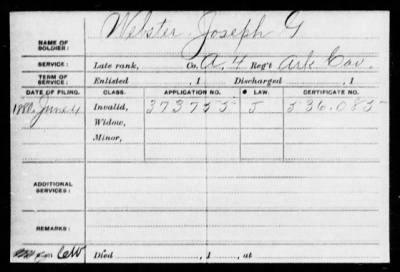 NAME OF SOLDIER: Webster, Joseph G
SERVICE: Late rank, Co. A, 4 Reg't Ark Cav.
TERM OF SERVICE: Enlisted , 1 Discharged , 1
DATE OF FILING. CLASS. APPLICATION NO. • LAW. CERTIFICATE NO.
1880, June 4 Invalid, 373755 J 536.085
Widow,
Minor,
ADDITIONAL SERVICES:
REMARKS:
Died , 1 , at